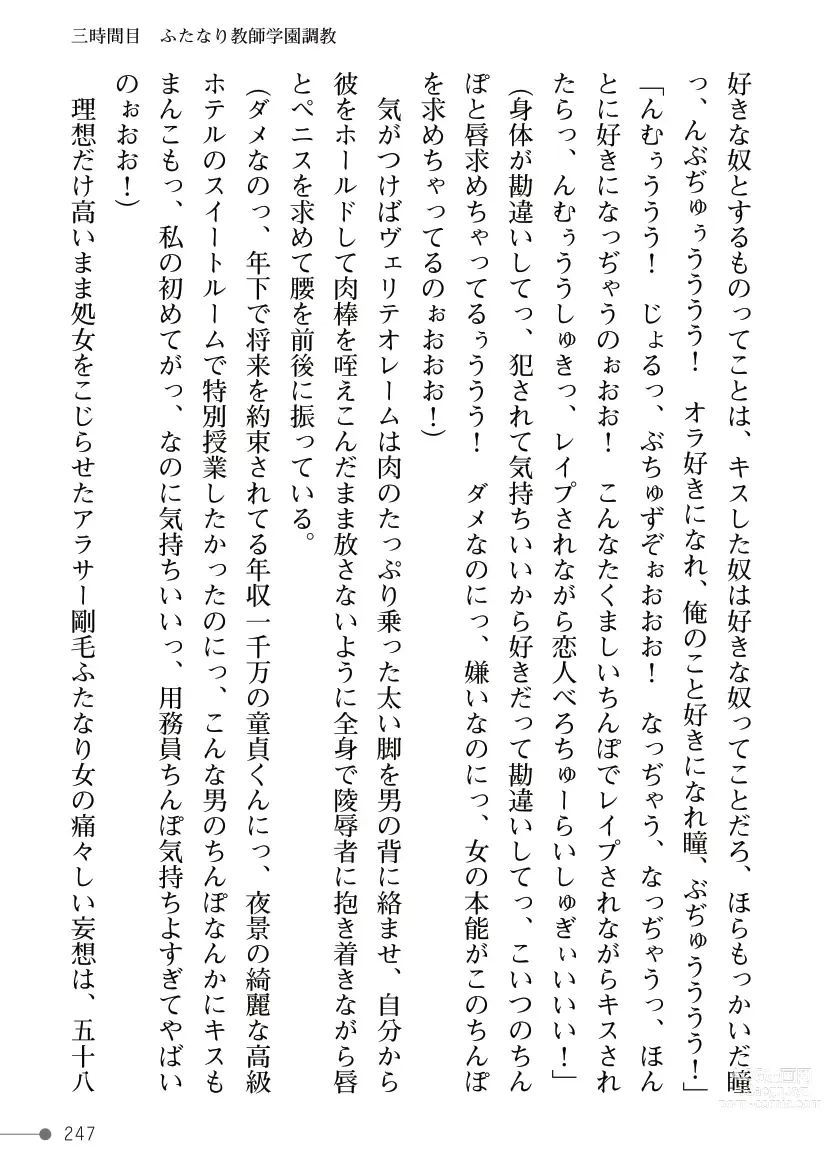 三時間目　ふたなり教師学園調教
好きな奴とするものってことは、キスした奴は好きな奴ってことだろ、ほらもっかいだ瞳
っ、んぶぢゅぅうううう！　オラ好きになれ、俺のこと好きになれ瞳、ぶぢゅうううう！」
「んむぅううう！　じょるっ、ぶちゅずぞぉおおお！　なっぢゃう、なっぢゃうっ、ほん
とに好きになっぢゃうのぉおお！　こんなたくましいちんぽでレイプされながらキスされ
たらっ、んむぅううしゅきっ、レイプされながら恋人べろちゅーらいしゅぎぃいいい！」
（身体が勘違いしてっ、犯されて気持ちいいから好きだって勘違いしてっ、こいつのちん
ぽと唇求めちゃってるぅううう！　ダメなのにっ、嫌いなのにっ、女の本能がこのちんぽ
を求めちゃってるのぉおおお！）
　気がつけばヴェリテオレームは肉のたっぷり乗った太い脚を男の背に絡ませ、自分から
彼をホールドして肉棒を咥えこんだまま放さないように全身で陵辱者に抱き着きながら唇
とペニスを求めて腰を前後に振っている。
（ダメなのっ、年下で将来を約束されてる年収一千万の童貞くんにっ、夜景の綺麗な高級
ホテルのスイートルームで特別授業したかったのにっ、こんな男のちんぽなんかにキスも
まんこもっ、私の初めてがっ、なのに気持ちいいっ、用務員ちんぽ気持ちよすぎてやばい
のぉおお！）
　理想だけ高いまま処女をこじらせたアラサー剛毛ふたなり女の痛々しい妄想は、五十八
247